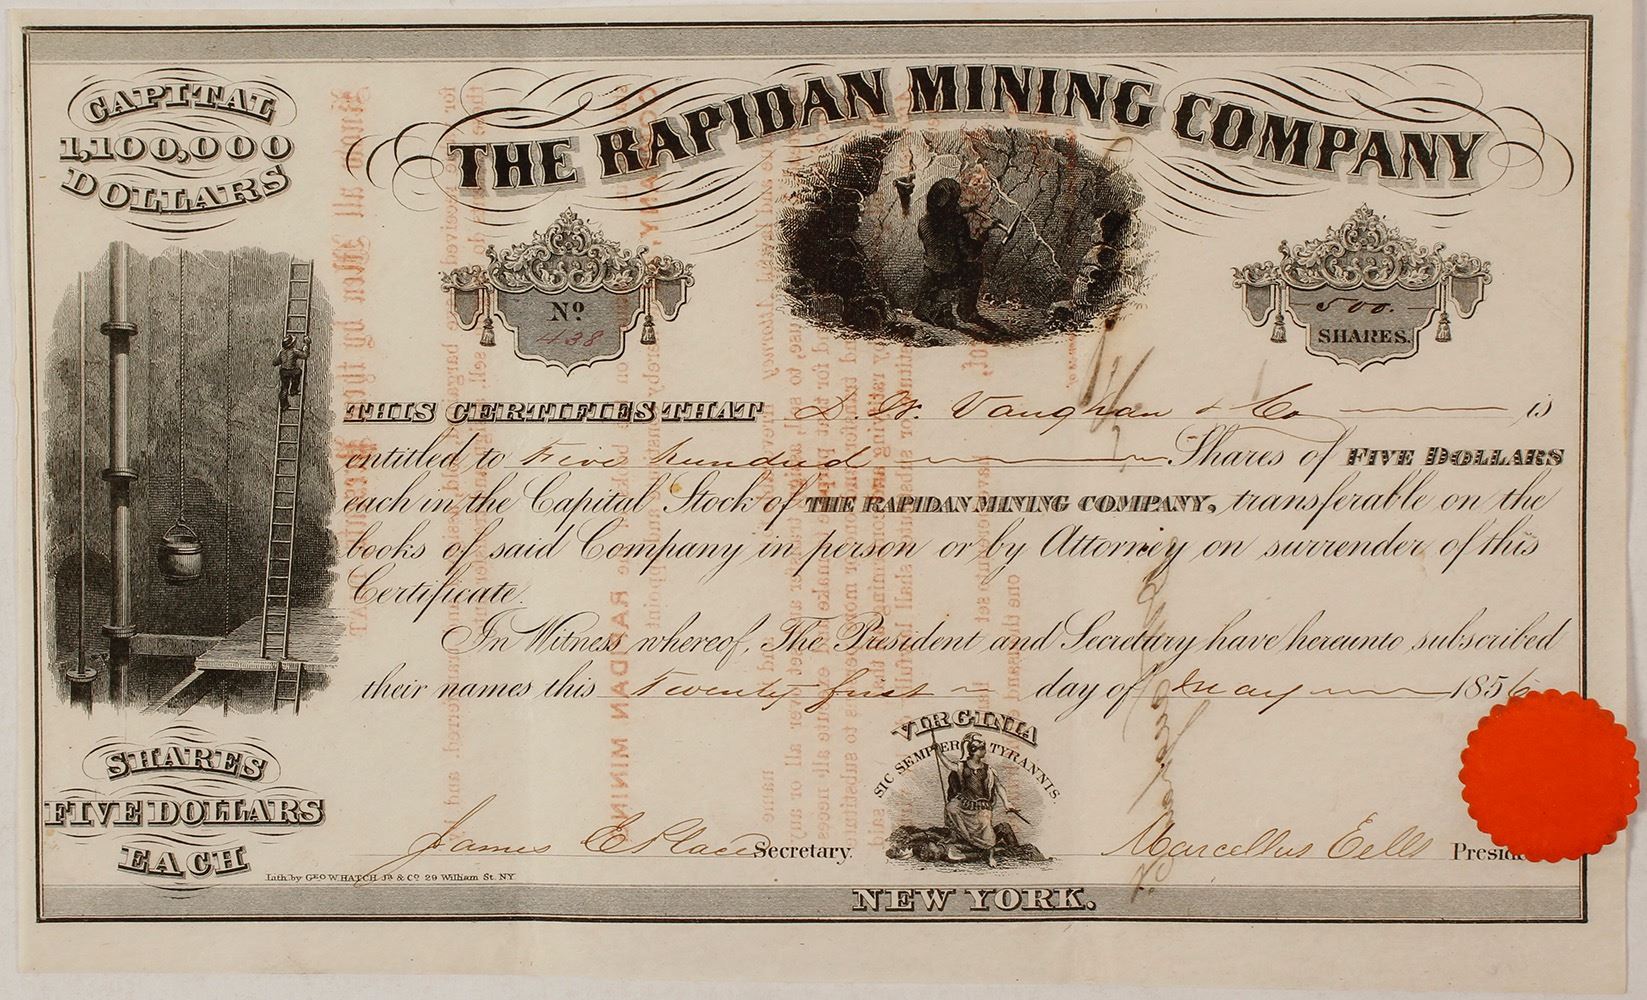 CAPITAL
1,100,000
DOLLARS
THE RAPIDAN MINING COMPANY
Nº
438
500.
SHARES.
THIS CERTIFIES THAT D. W. Vaughan & Co is
entitled to Five hundred Shares of FIVE DOLLARS
each in the Capital Stock of THE RAPIDAN MINING COMPANY, transferable on the
books of said Company in person or by Attorney on surrender of this
Certificate.
In Witness whereof, The President and Secretary have hereunto subscribed
their names this Twenty first day of May 1856
VIRGINIA
SIC SEMPER TYRANNIS.
SHARES
FIVE DOLLARS
EACH
James E Place Secretary.
Marcellus Eells Presid
Lith. by GEO W. HATCH JR & CO 29 William St. NY
NEW YORK.